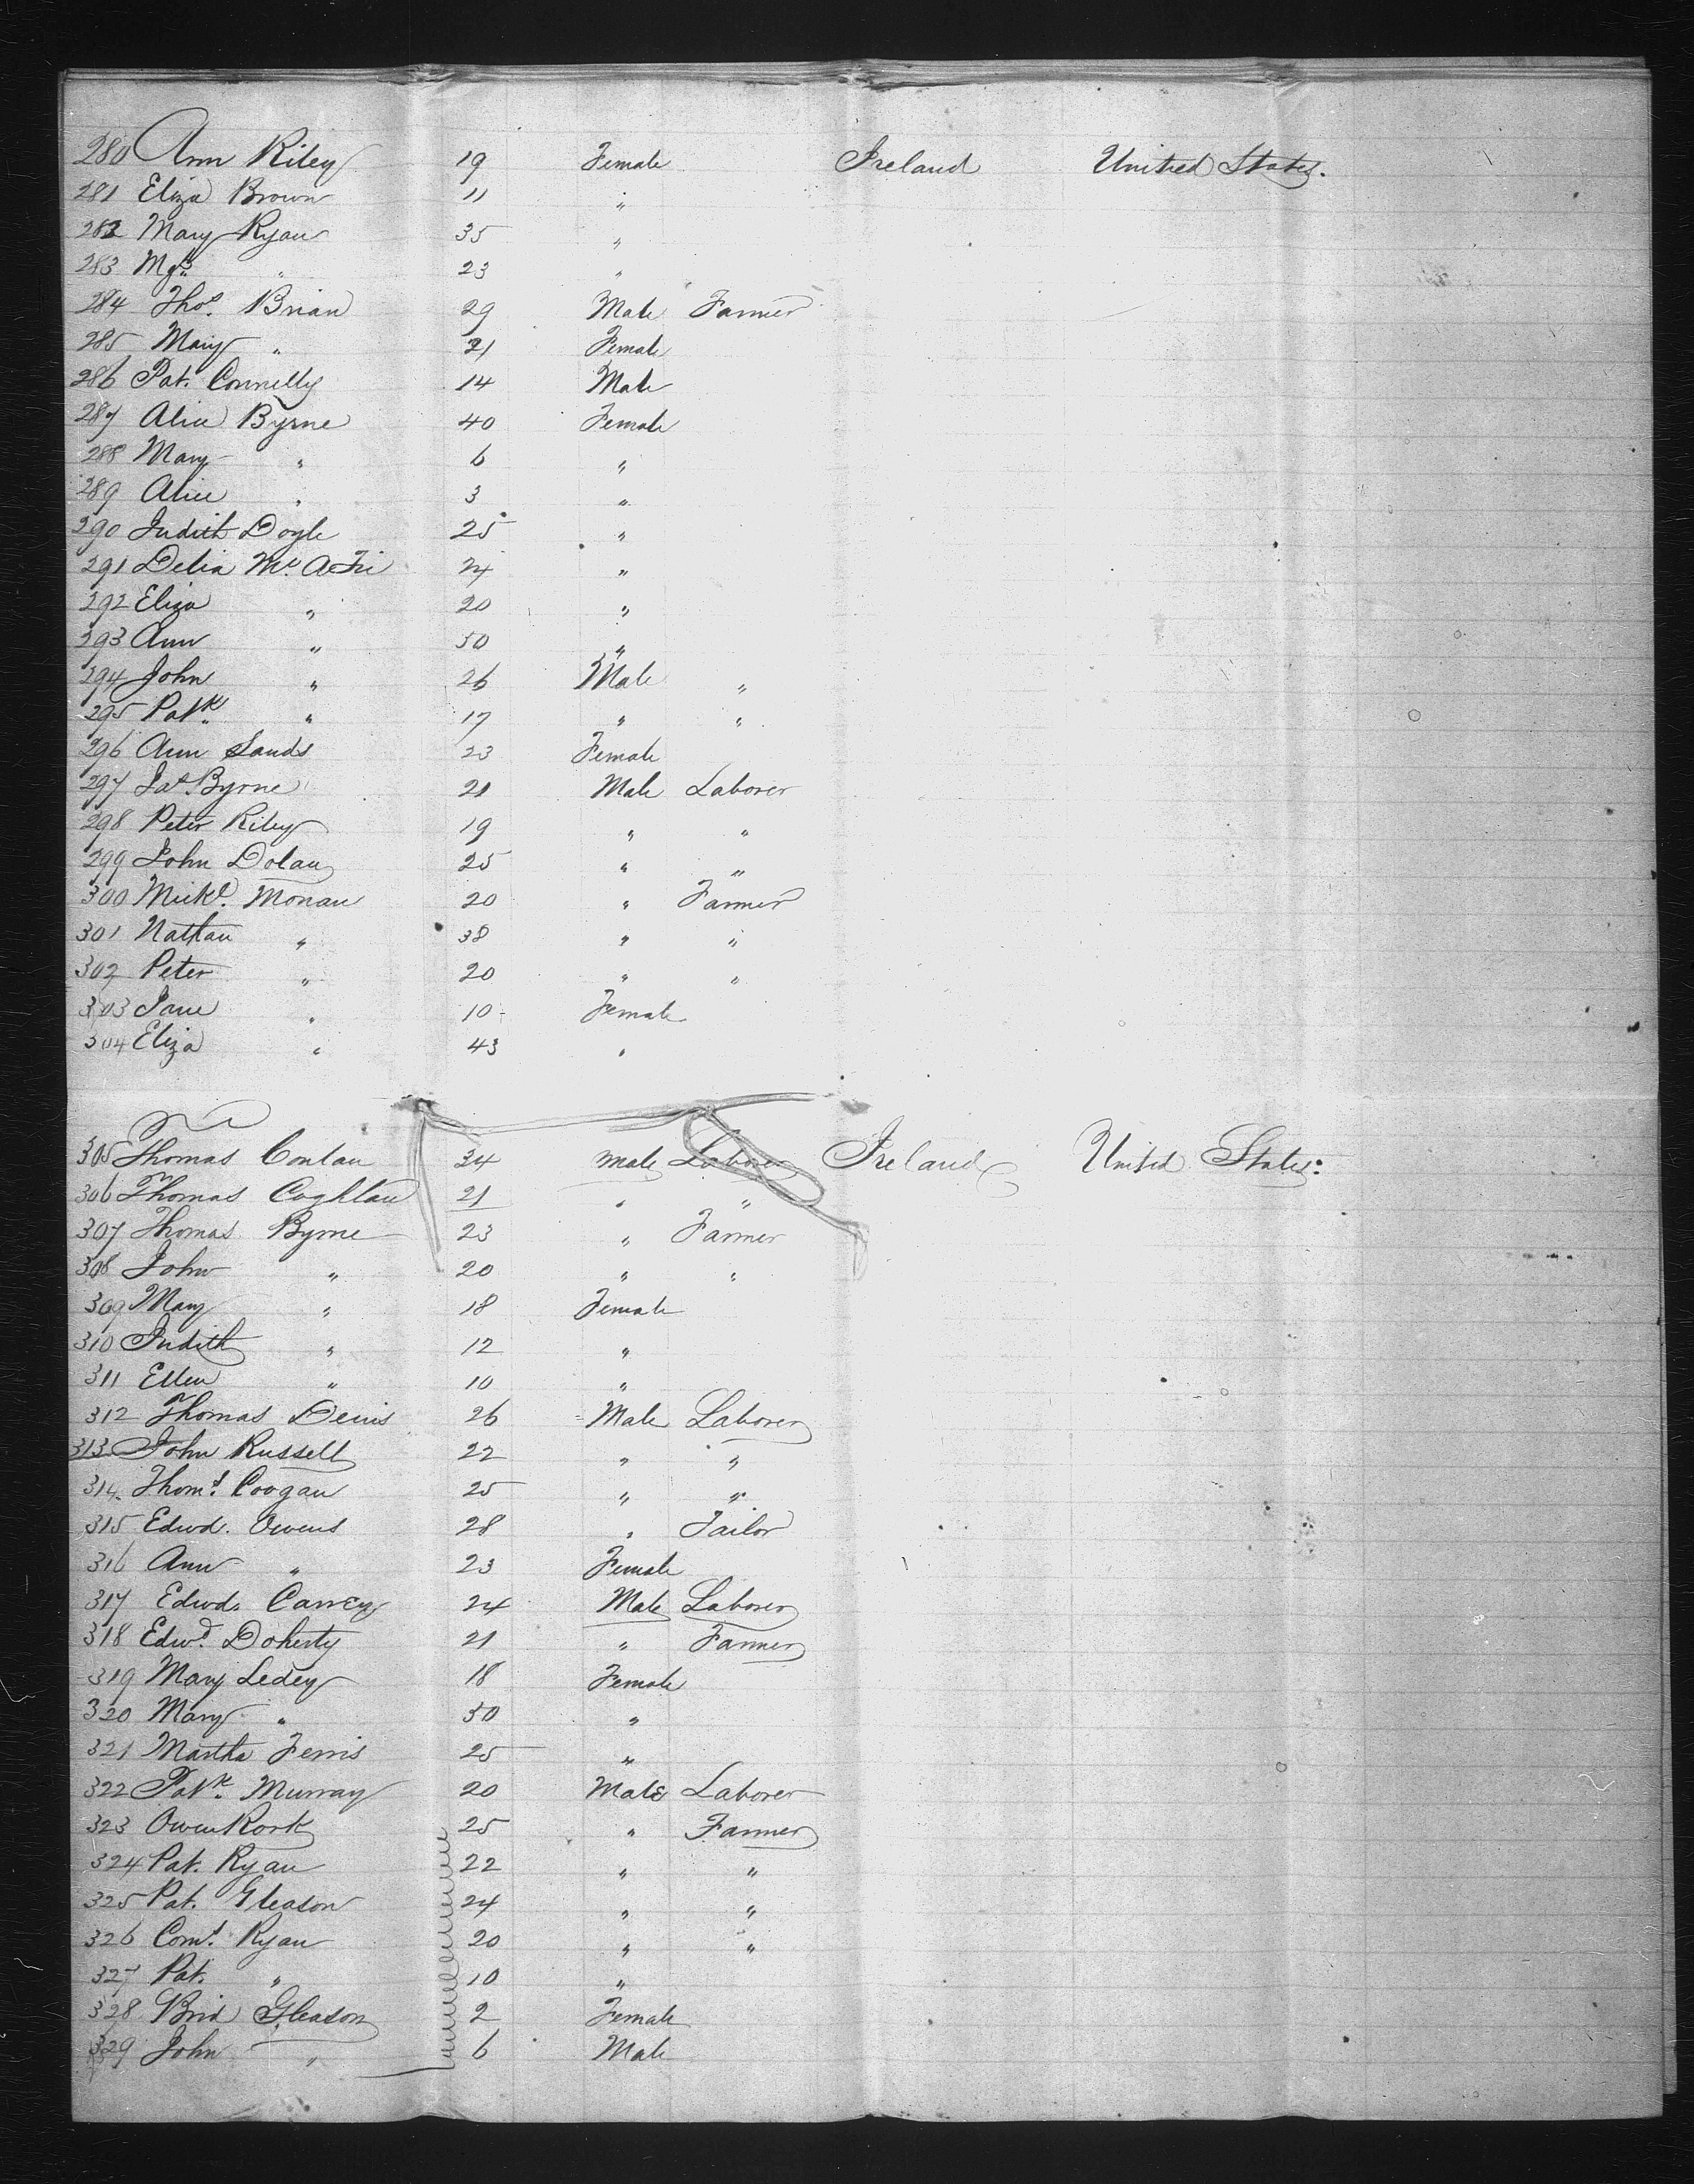 280 Ann Riley 19 Female Ireland United States.
281 Eliza Brown 11 "
282 Mary Ryan 35 "
283 " 23 "
284 Thos. Brian 29 Male Farmer
285 Mary " 21 Female
286 Pat. Connelly 14 Male
287 Alice Byrne 40 Female
288 Mary " 6 "
289 Alice " 3 "
290 Judith Doyle 25 "
291 Delia 24 "
292 Eliza " 20 "
293 Ann " 50 "
294 John " 26 Male "
295 Patk. " 17 " "
296 Ann Sands 23 Female
297 Jas. Byrne 21 Male Laborer
298 Peter Riley 19 " "
299 John Dolan 25 " "
300 Mickl. Monan 20 " Farmer
301 Nathan " 38 " "
302 Peter " 20 " "
303 Jane " 10 Female
304 Eliza " 43 "
305 Thomas Conlan 34 male Laborer Ireland United States:
306 Thomas Coghlan 21 " "
307 Thomas Byrne 23 " Farmer
308 John " 20 " "
309 Mary " 18 Female
310 Judith " 12 "
311 Ellen " 10 "
312 Thomas Denis 26 Male Laborer
313 John Russell 22 " "
314. Thoms. Coogan 25 " "
315 Edwd. Owens 28 " Tailor
316 Ann " 23 Female
317 Edwd. Carrey 24 Male Laborer
318 Edwd. Doherty 21 " Farmer
319 Mary Ledey 18 Female
320 Mary " 50 "
321 Martha Ferris 25 "
322 Patk. Murray 20 Male Laborer
323 Owen Rork 25 " Farmer
324 Pat. Ryan 22 " "
325 Pat. Gleason 24 " "
326 Ryan 20 " "
327 Pat. " 10 "
328 Brid Gleason 2 Female
329 John " 6 Male